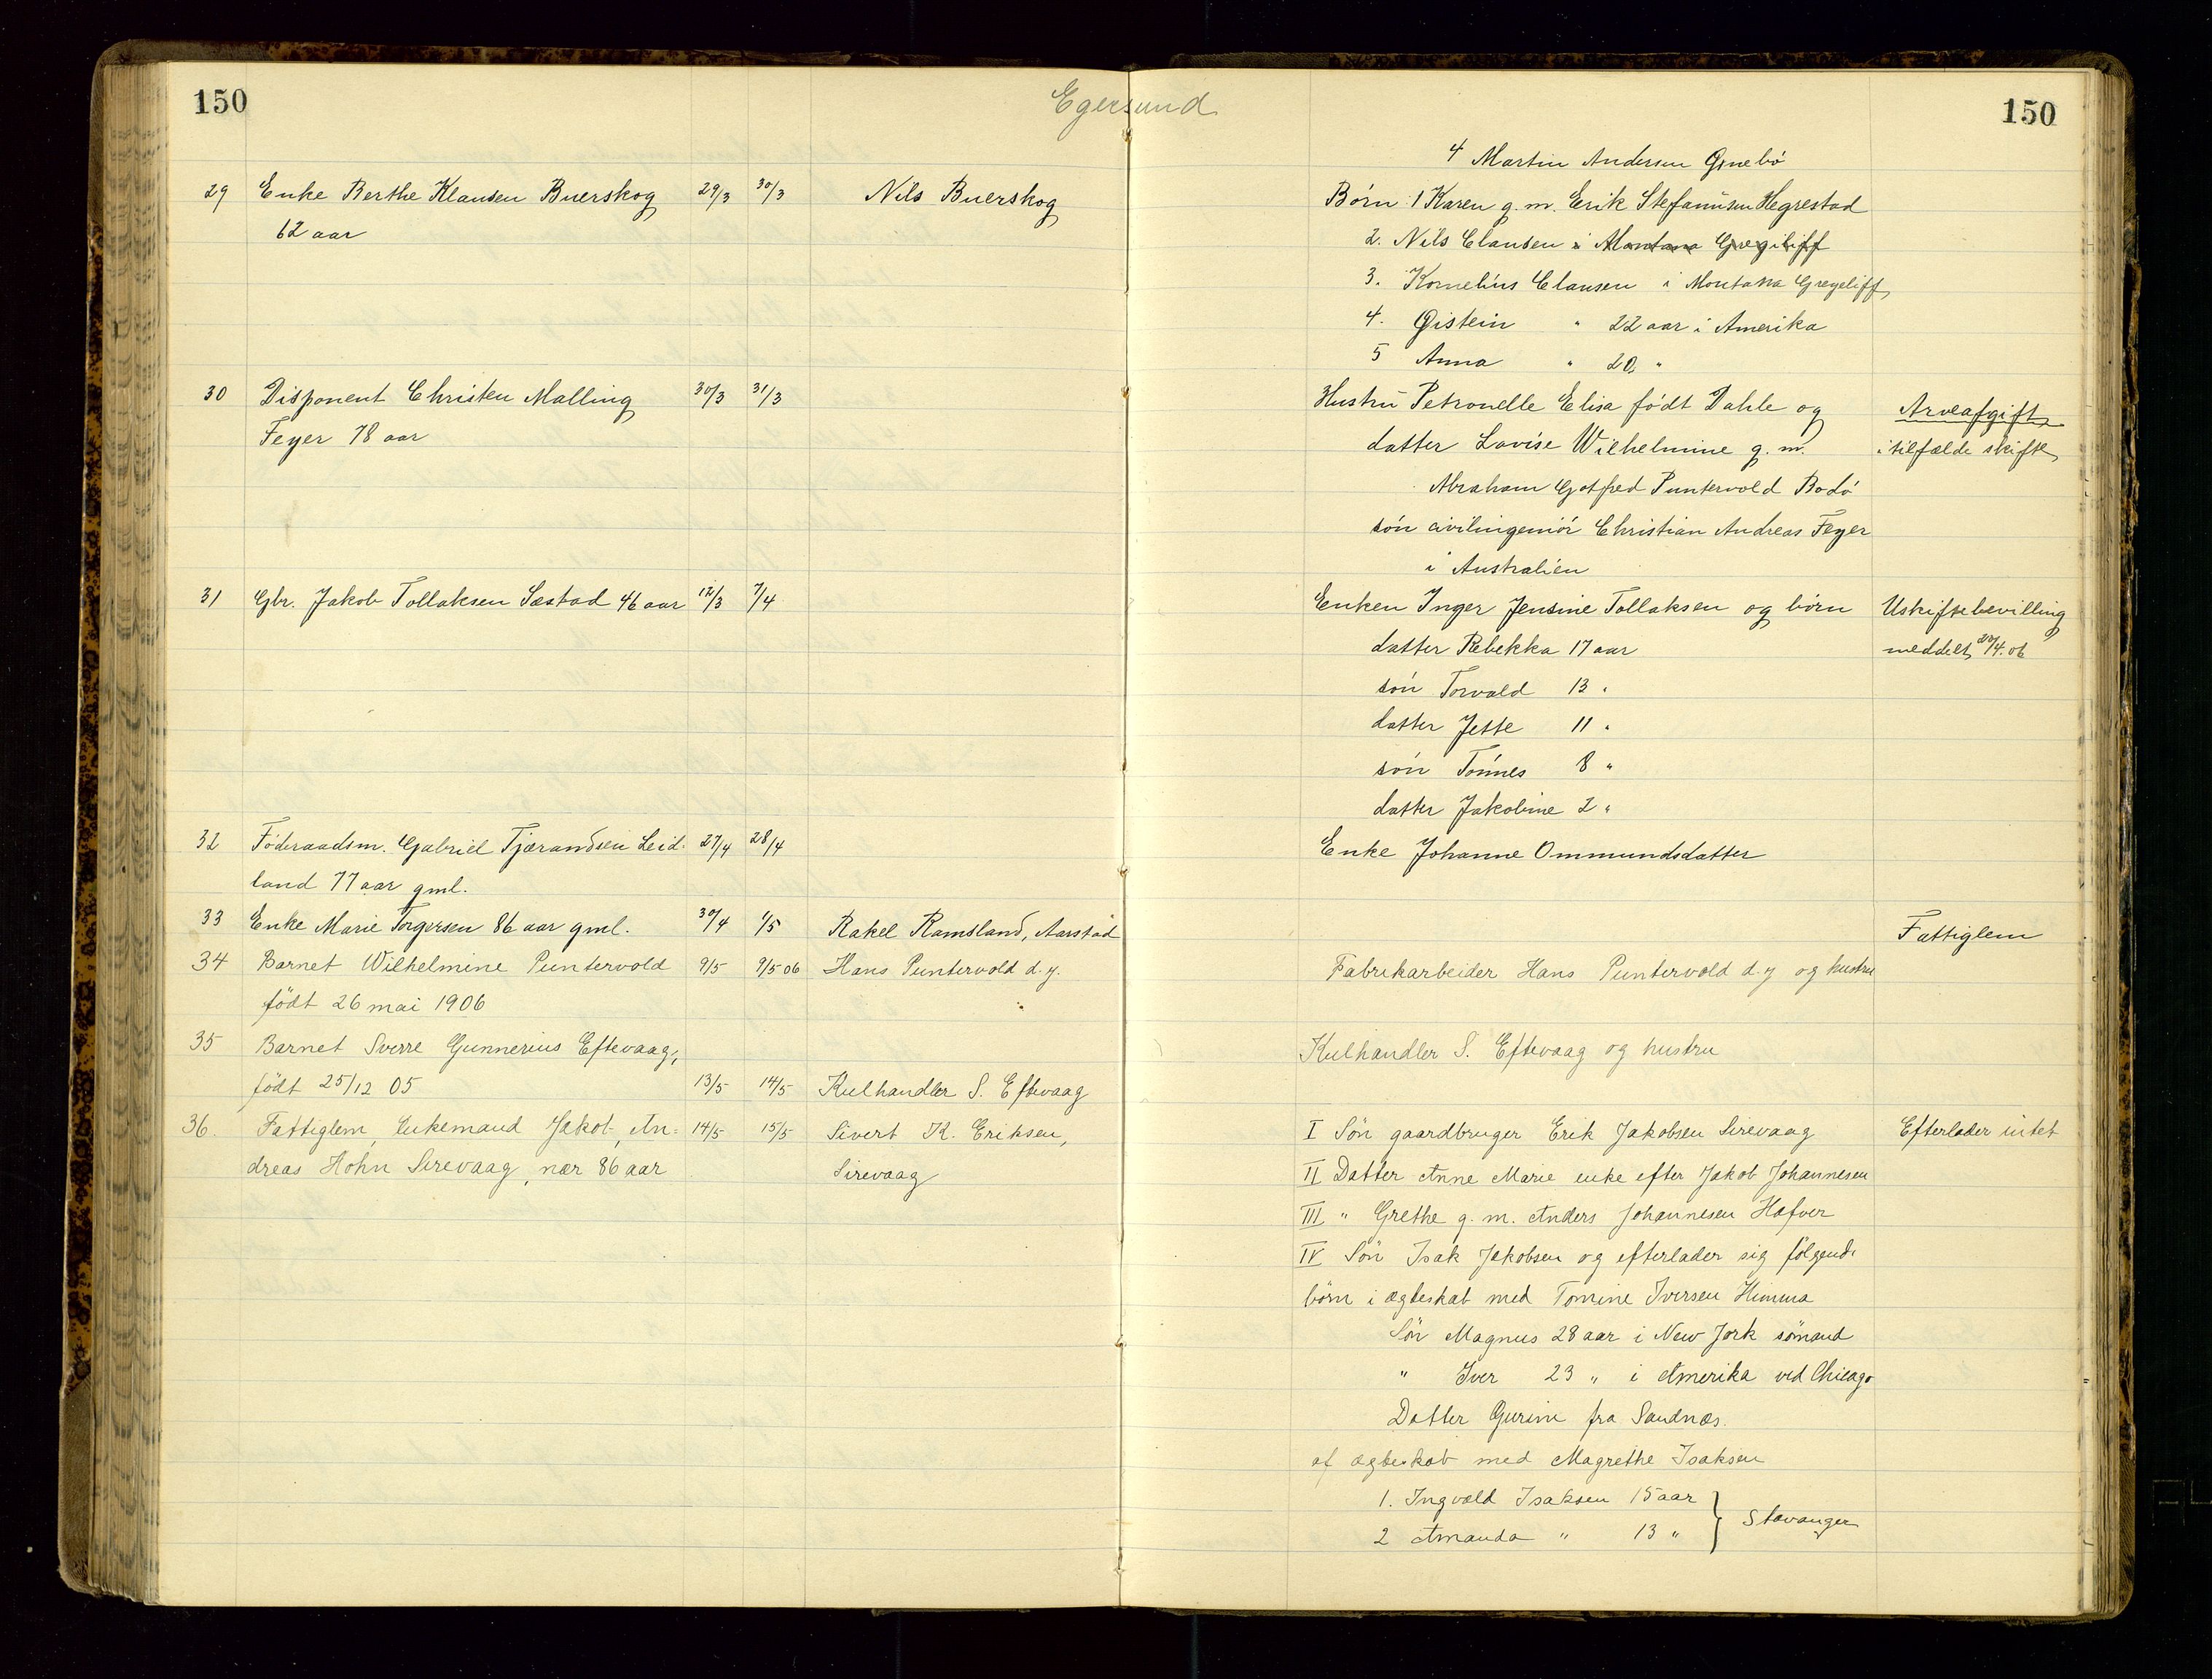 150
Egersund
150
4 Martin Andersen Gjnebö
29 Enke Berthe Klausen Buerskog 29/3 30/3 Nils Buerskog
62 aar
Börn: 1 Karen g. m. Erik Stefanusen Hegrestad
2. Nils Clausen i Montana Greycliff
3. Kornelius Clausen i Montana Greycliff
4. Øistein " 22 aar i Amerika
5 Anna " 20 "
30 Disponent Christen Malling 30/3 31/3
Feyer 78 aar
Hustru Petronelle Elisa födt Dahle og
datter Lovise Wilhelmine g. m.
Abraham Gotfred Puntervold Bodö
sön civilingeniör Christian Andreas Feyer
i Australien
Arveafgift
i tilfælde skifte
31 Gbr. Jakob Tollaksen Sæstad 46 aar 12/3 7/4
Enken Inger Jensine Tollaksen og börn
datter Rebekka 17 aar
sön Torvald 13 "
datter Jette 11 "
sön Tönnes 8 "
datter Jakobine 2 "
Uskiftebevilling
meddelt 20/4.06
32 Föderaadsm. Gabriel Tjærandsen Leid- 27/4 28/4
land 77 aar gml.
Enke Johanne Ommundsdatter
33 Enke Marie Torgersen 86 aar gml. 30/4 1/5 Rakel Ramsland, Aarstad
Fattiglem
34 Barnet Wilhelmine Puntervold 9/5 9/5 06 Hans Puntervold d. y.
födt 26 mai 1906
Fabrikarbeider Hans Puntervold d. y og hustru
35 Barnet Sverre Gunnerius Eftevaag,
födt 25/12 05 13/5 14/5 Kulhandler S. Eftevaag
Kulhandler S. Eftevaag og hustru
36. Fattiglem, Enkemand Jakob An= 14/5 15/5 Sivert K. Eriksen,
dreas Hohn Sirevaag, nær 86 aar Sirevaag
I Sön gaardbruger Erik Jakobsen Sirevaag
II Datter Anne Marie enke efter Jakob Johannesen
III " Grethe g. m. Anders Johannesen Hafver
IV Sön Isak Jakobsen og efterlader sig fölgende
börn i ægteskab med Tomine Iversen Himma
Sön Magnus 28 aar i New Jork sömand
" Iver 23 " i Amerika ved Chicago
Datter Gurine fra Sandnæs.
af ægteskab med Magrethe Isaksen
1. Ingvald Isaksen 15 aar
2 Amanda " 13 " } Stavanger
Efterlader intet